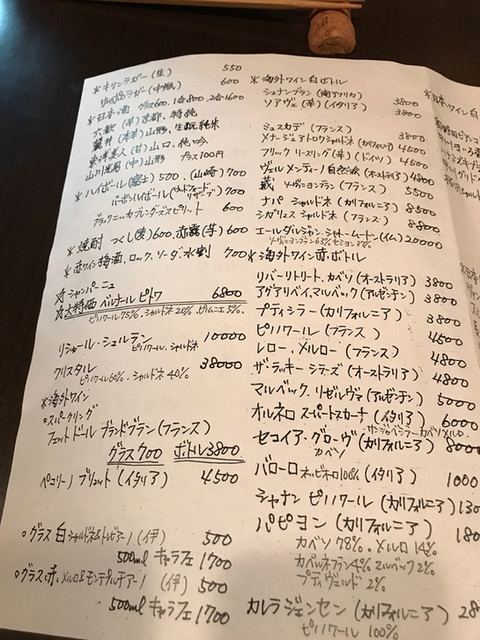 ＊キリンラガー(生) 550
サッポロラガー(中瓶) 600
＊日本酒 グラス600、1合800、2合1600
六歓(辛)京都、特純
山形、生酛純米
東洋美人(甘)山口、純吟
(中)山形 グラス100円
＊ハイボール(富士)500、(山崎)700
バーボンハイボール(ウッドフォードリザーブ)700
ブラックニッカブレンダーズスピリット 600
＊焼酎 つくし(麦)600、赤霧(芋)600
＊赤ワイン梅酒、ロック、ソーダ、水割 700
☆シャンパーニュ
☆大特価 ベルナール ピトワ 6800
ピノノワール75%、シャルドネ20%、ピノムニエ5%、
リシャール・シュルラン 10000
ピノノワール、シャルドネ
クリスタル 38000
ピノノワール60%、シャルドネ40%
＊海外ワイン
○スパークリング
フェットドール ブランドブラン(フランス)
グラス700 ボトル3800
ペコリーノ ブリュット(イタリア) 4500
○グラス白 シャルドネ&トレビアーノ(伊) 500
500ml キャラフェ 1700
○グラス赤 メルロ&モンテプルチアーノ(伊) 500
500ml キャラフェ 1700
＊海外ワイン白ボトル
シュナンブラン(南アフリカ) 3800
ソアヴェ(辛)(イタリア) 3800
ミュスカデ(フランス) 3800
メナージュアトロワシャルドネ(カリフォルニア) 4500
フリック リースリング(辛)(ドイツ) 4500
ヴェルメンティーノ自然派(イタリア) 4800
蔵 ソーヴィニヨンブラン(フランス) 5500
ナパ シャルドネ(カリフォルニア) 8500
シガリュス シャルドネ(フランス) 8800
エールダルジャン、シャトームートン(仏) 20000
ソーヴィニヨンブラン63% セミヨン37%
＊海外ワイン赤ボトル
リバーリトリート、カベソ(オーストラリア) 3800
アグアリベイ、マルベック(アルゼンチン) 3800
プティシラー(カリフォルニア) 3800
ピノノワール(フランス) 4500
レロー、メルロー(フランス) 4800
ザ・ラッキー シラーズ(オーストラリア) 4800
マルベック、リゼルヴァ(アルゼンチン) 5000
オルネロ スーパートスカーナ(イタリア) 6000
サンジョベーゼ・カベソ・メルロ
セコイア・グローヴ(カリフォルニア) 8000
カベソ
バローロ ネッビオーロ100%(イタリア) 1000
シャナン ピノノワール(カリフォルニア) 130
パピヨン(カリフォルニア) 180
カベソ78%、メルロ14%
カベルネフラン4% マルベック2%
プティヴェルド2%
カルラジェンセン(カリフォルニア) 28
ピノノワール100%
日本ワイン白